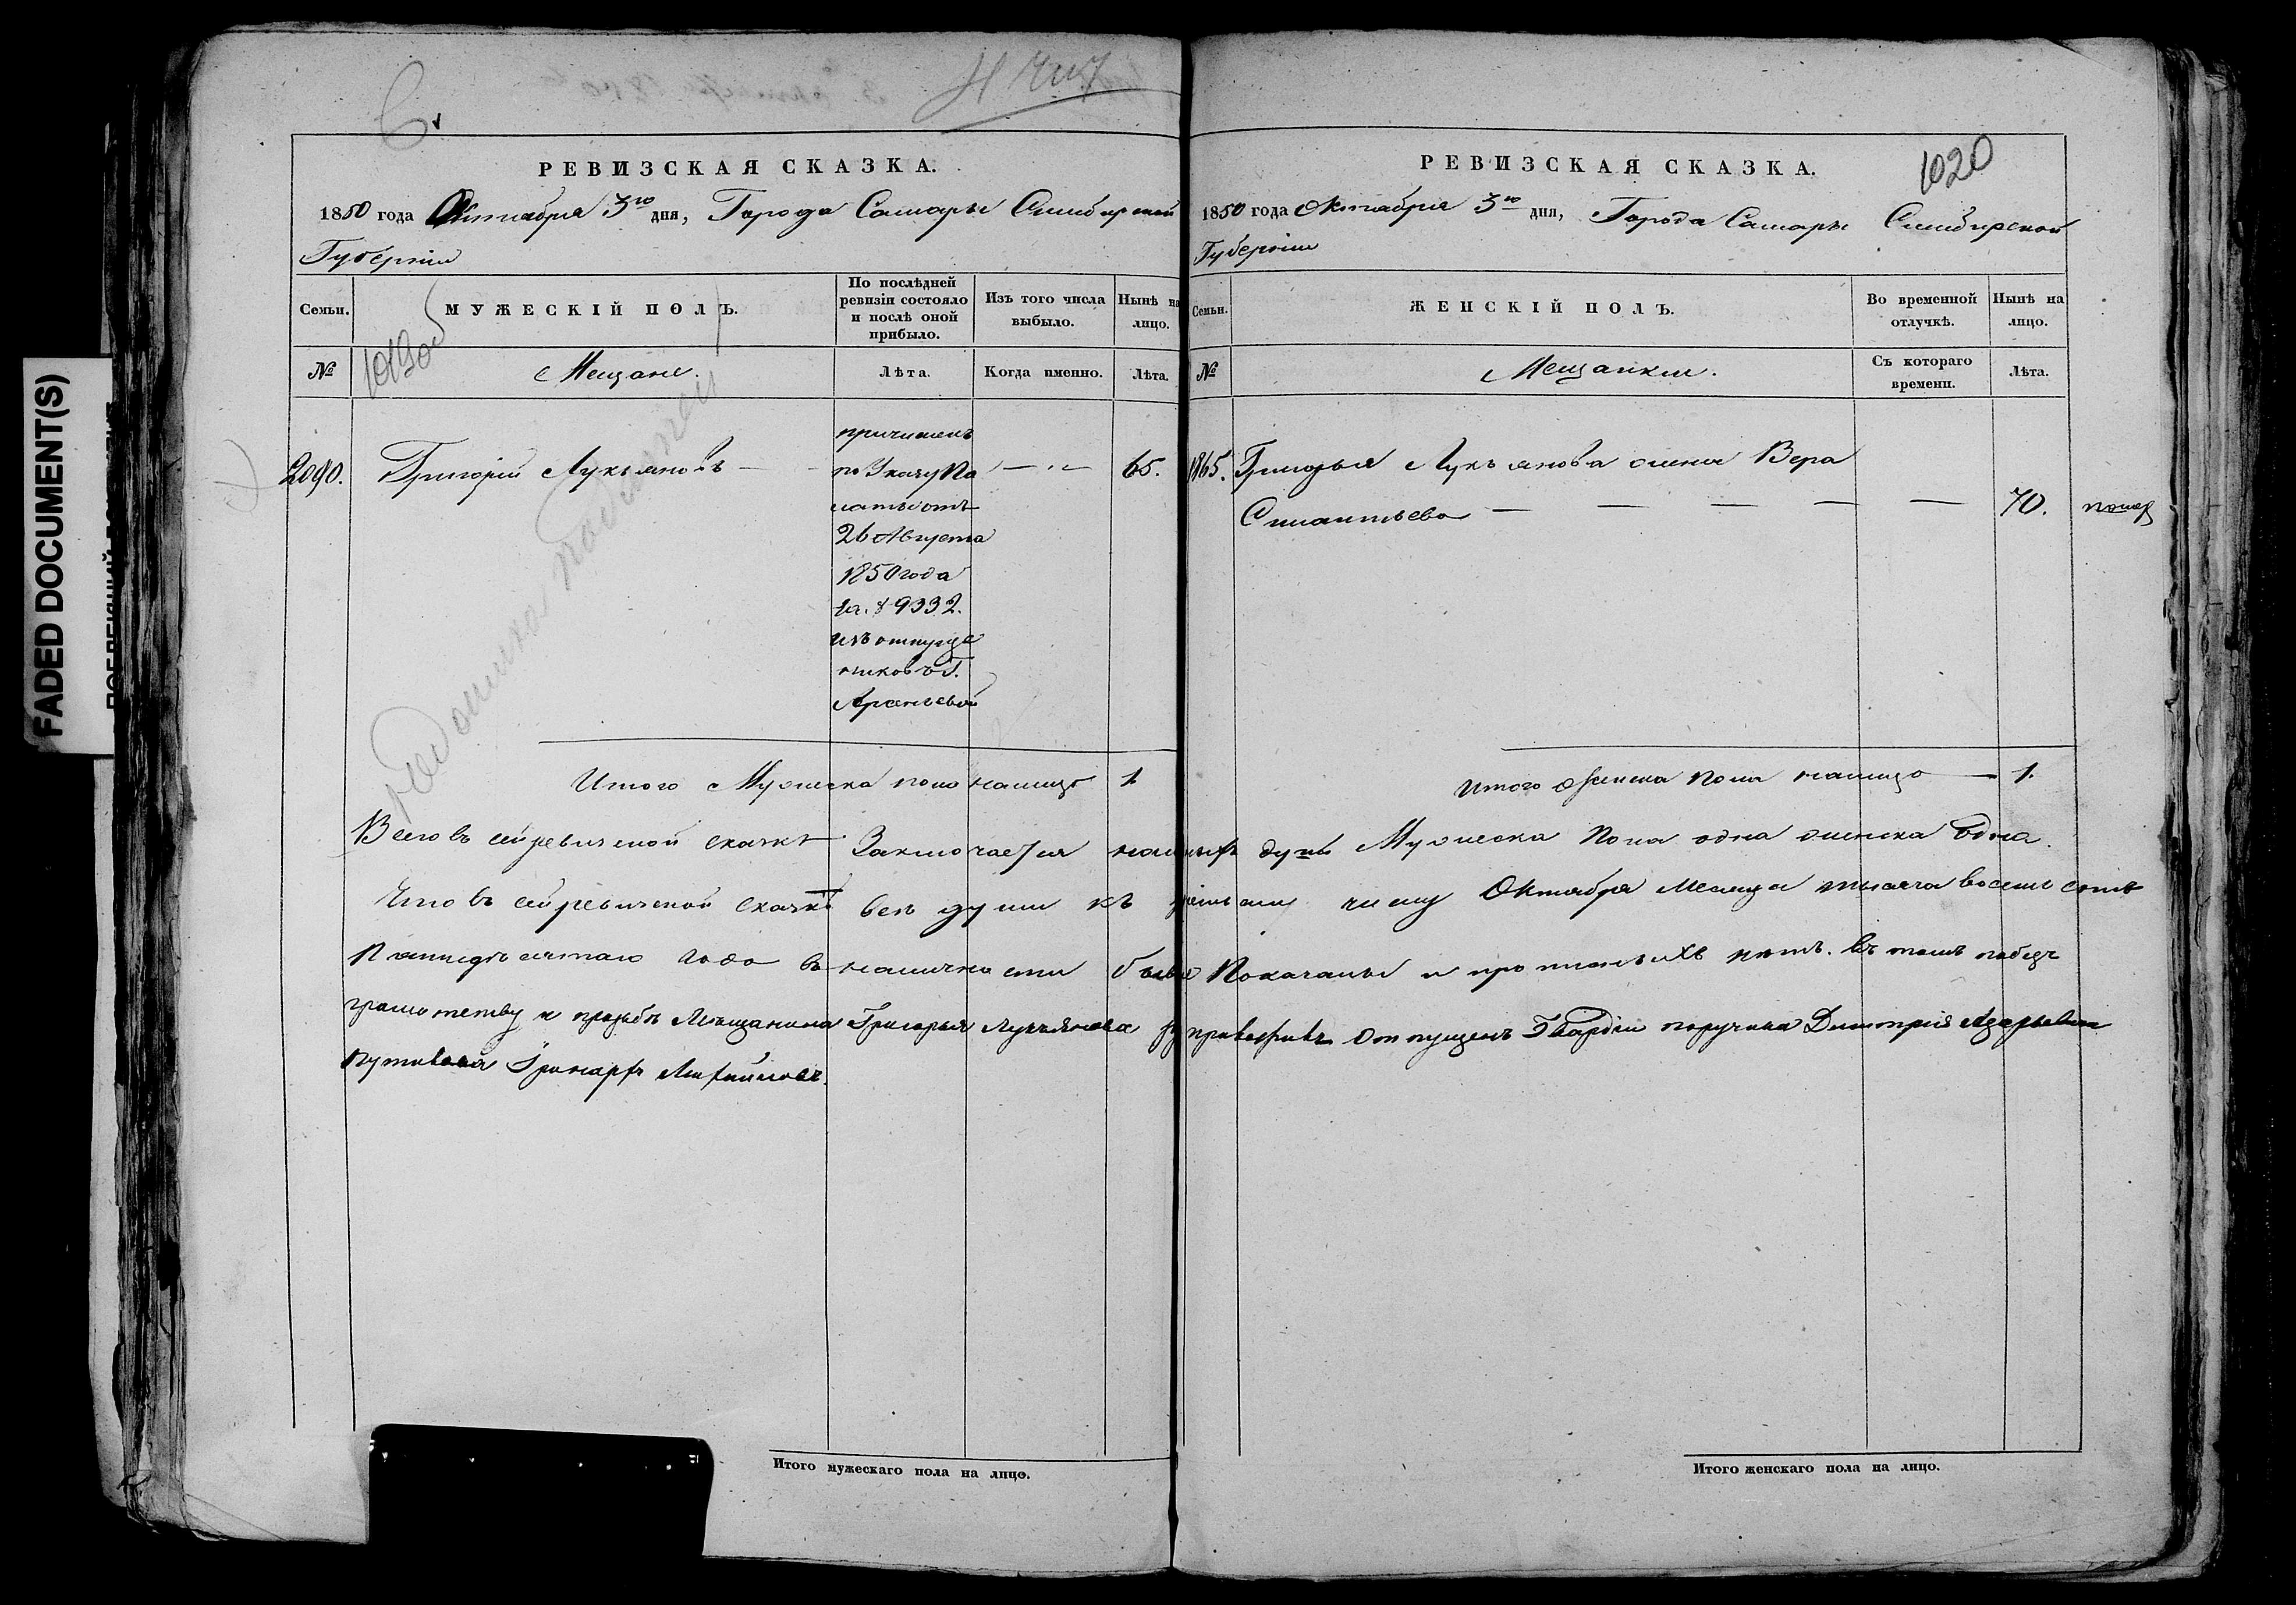 FADED DOCUMENT(S)
1020
РЕВИЗСКАЯ СКАЗКА.
1850 года Октября 3го дня, Города Самары Симбирской
Губернии
Семьи.
МУЖЕСКІЙ ПОЛЪ.
По послѣдней
ревизіи состояло
и послѣ оной
прибыло.
Изъ того числа
выбыло.
Нынѣ на
лицо.
№
Мещане.
Лѣта.
Когда именно.
Лѣта.
2090.
Григорій Лукьяновъ
65.
причисленъ
по Указу Па
латы отъ
26 Августа
1850 года
за № 9332.
изъ отпуще
никовъ Г.
Итого Мужеска пола налицо 1
РЕВИЗСКАЯ СКАЗКА.
1850 года Октября 3го дня, Города Самары Симбирской
Губерніи
Семьи.
ЖЕНСКІЙ ПОЛЪ.
Во временной
отлучкѣ.
Нынѣ на
лицо.
№
Мещанки.
Съ котораго
времени.
Лѣта.
1865.
Григорья Лукьянова жена Вера
70.
Итого женска пола налицо 1.
Всего въ сей ревизской сказкѣ Заключается наличныхъ душъ Мужеска пола одна женска одна.
Что въ сей ревизской сказкѣ всѣ души къ третьему числу Октября месяца тысяча восемь сотъ
Пятидесятаго года въ наличности бывшія Показаны и прописныхъ нѣтъ. въ томъ по безъ
грамотству и прозьбѣ Мещанина Григорья Лукьянова отпущенъ Гвардіи поручика Дмитрія
Итого мужескаго пола на лицо.
Итого женскаго пола на лицо.